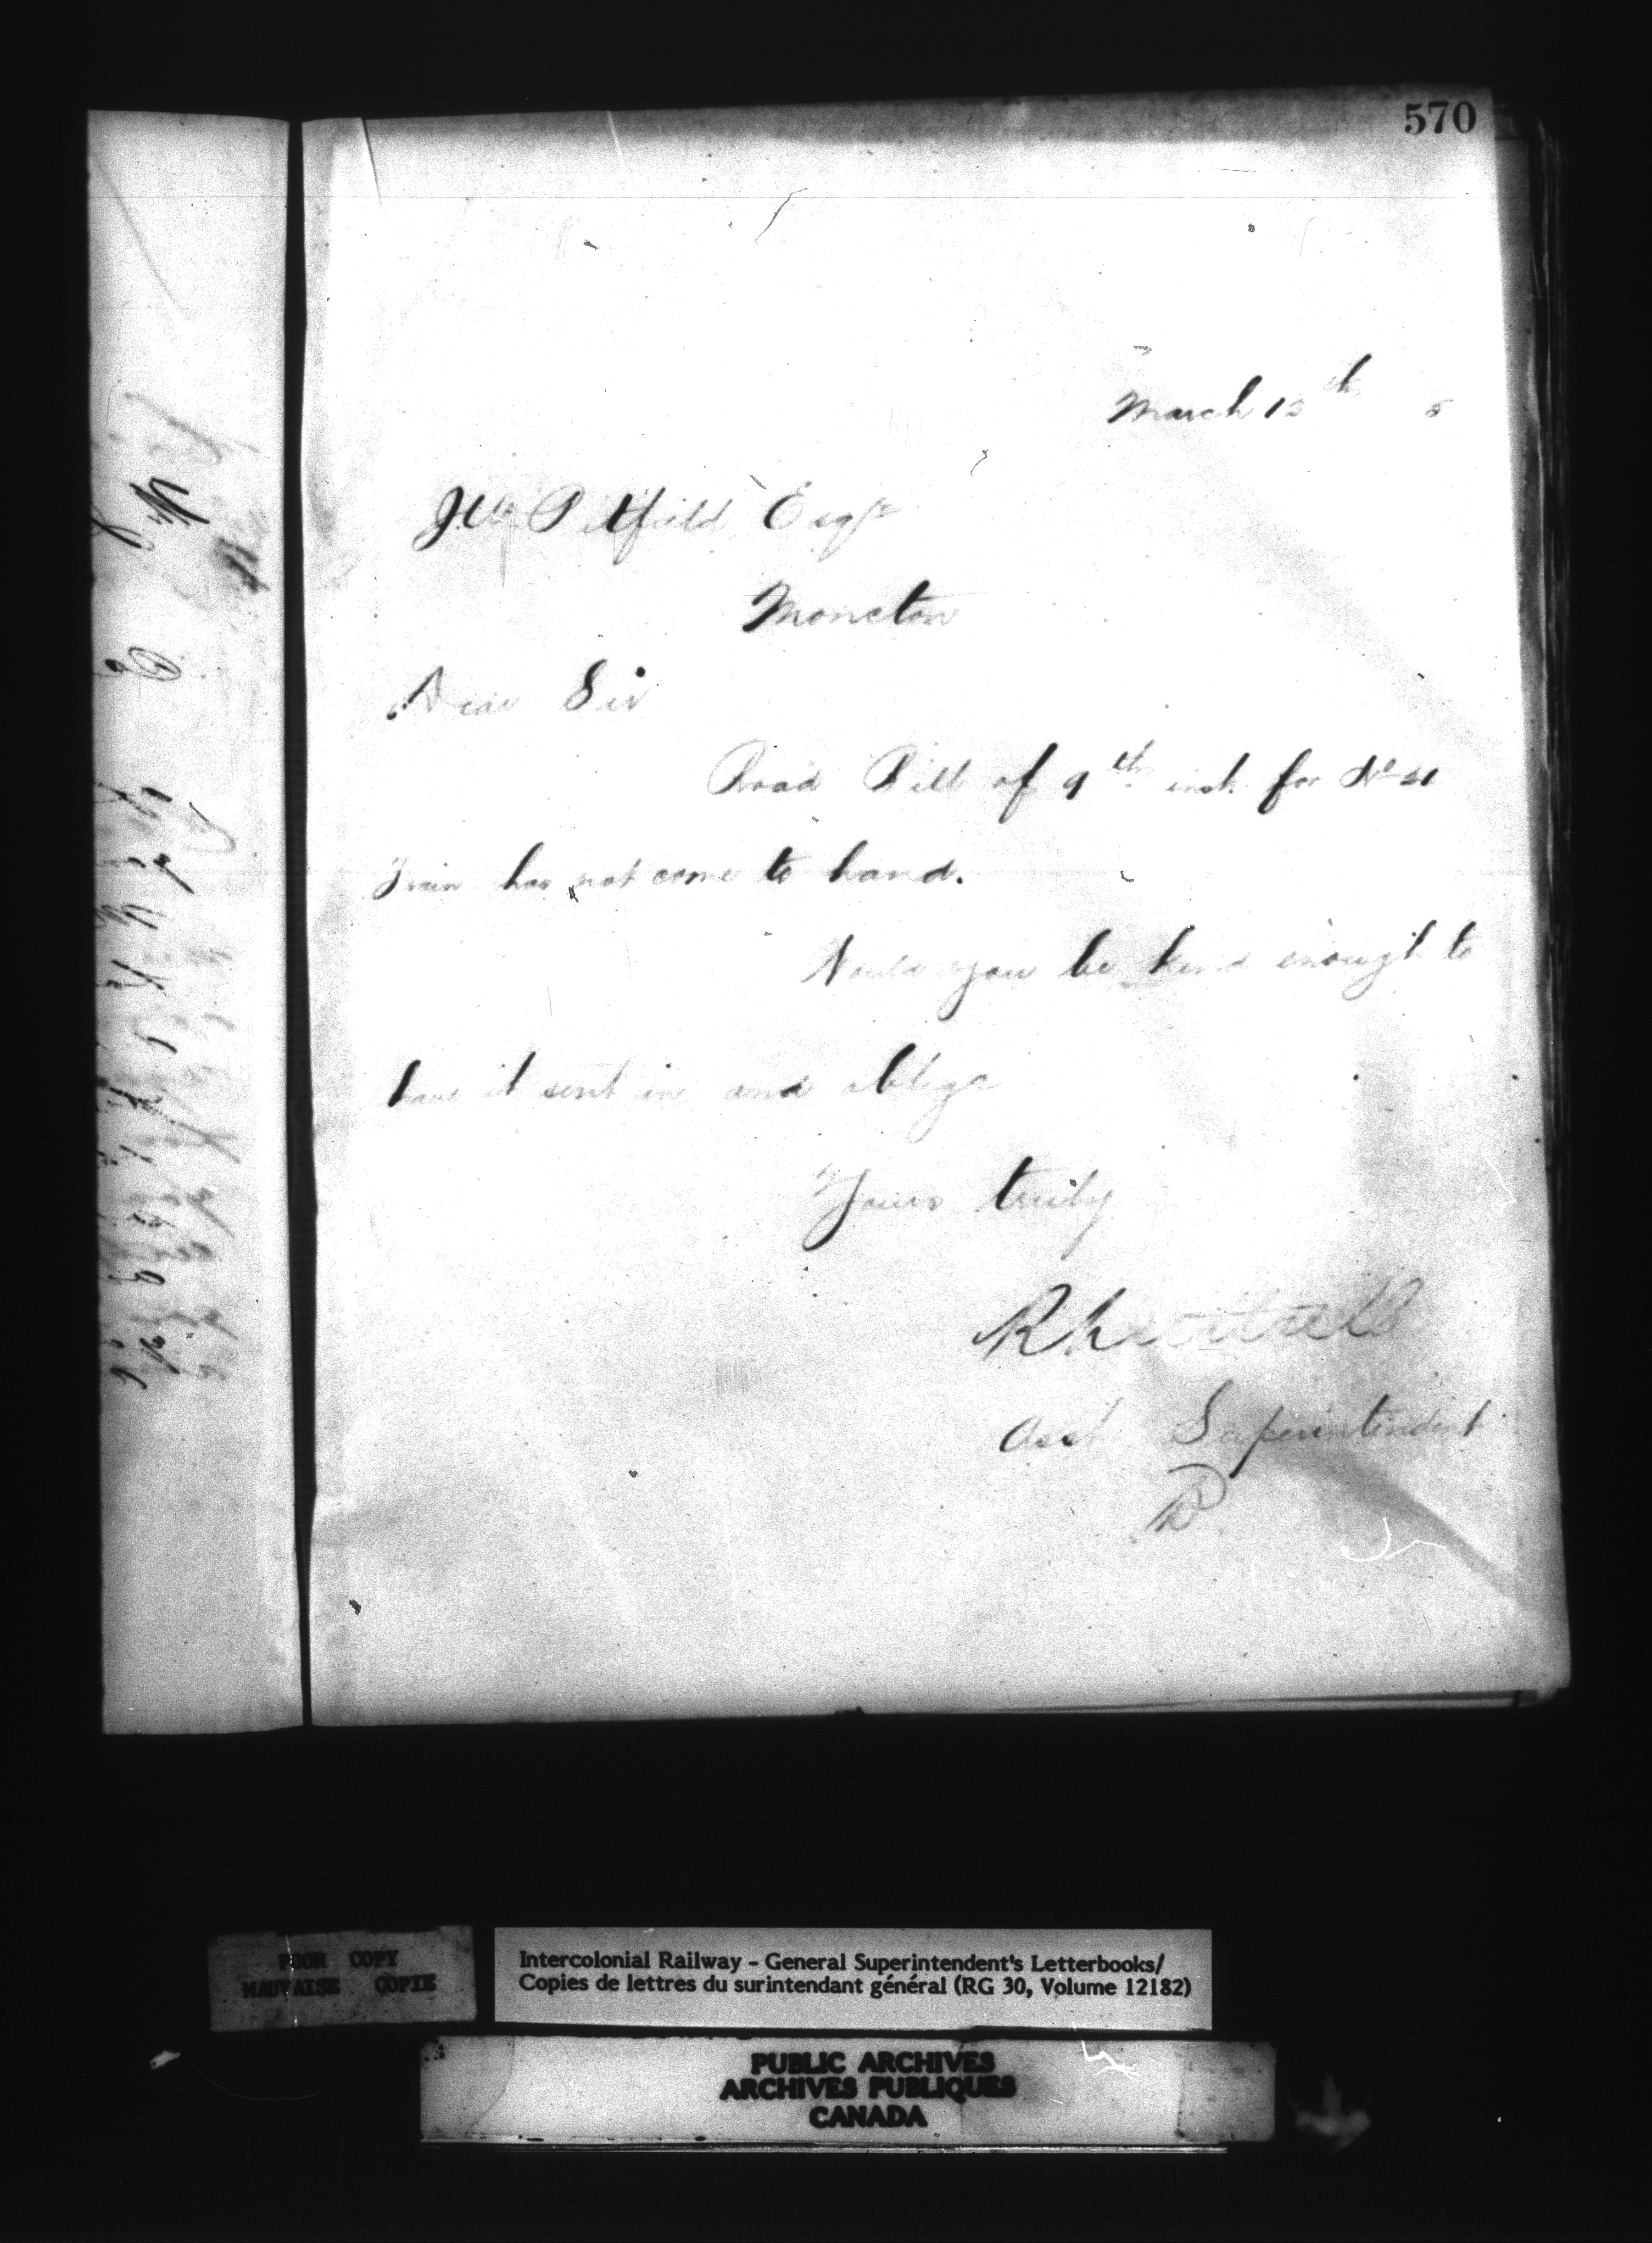 570
March 12th 5
Pitfield Esqr
Moncton
Dear Sir
Road Bill of 9th inst. for No 21
Train has not come to hand.
Would you be kind enough to
have it sent in and oblige
Yours truly
Asst Superintendent
POOR COPY
MAUVAISE COPIE
Intercolonial Railway - General Superintendent's Letterbooks/
Copies de lettres du surintendant général (RG 30, Volume 12182)
PUBLIC ARCHIVES
ARCHIVES PUBLIQUES
CANADA